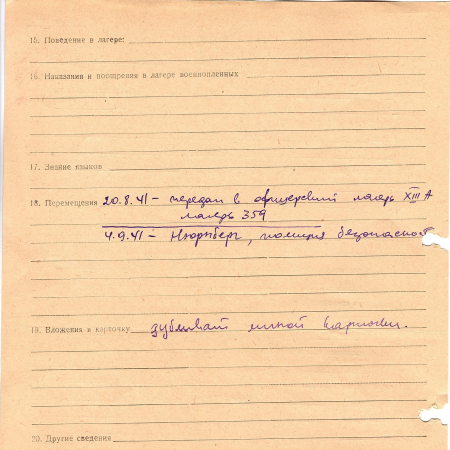 15. Поведение в лагере:
16. Наказания и поощрения в лагере военнопленных
17. Знание языков
18. Перемещения 20.8.41 - передан в офицерский лагерь XIII A
лагерь 359
4.9.41 - Нюрнберг, полиция безопасност
19. Вложения в карточку дубликат личной карточки.
20. Другие сведения